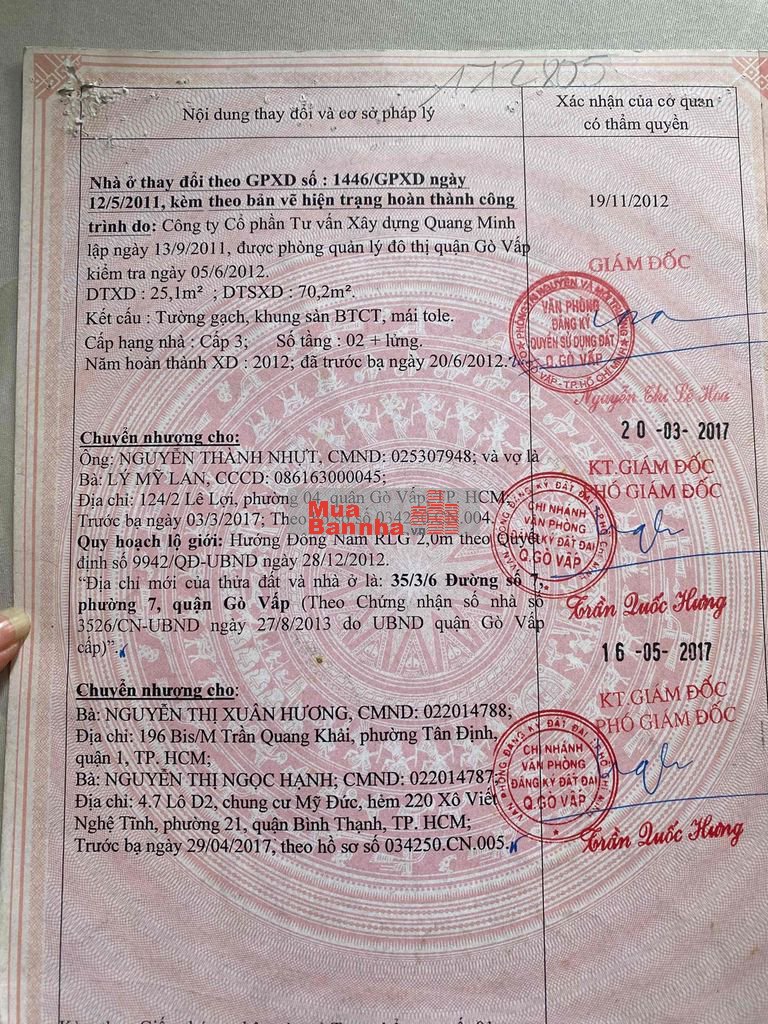 112805
Nội dung thay đổi và cơ sở pháp lý
Xác nhận của cơ quan
có thẩm quyền
Nhà ở thay đổi theo GPXD số : 1446/GPXD ngày
12/5/2011, kèm theo bản vẽ hiện trạng hoàn thành công
trình do: Công ty Cổ phần Tư vấn Xây dựng Quang Minh
lập ngày 13/9/2011, được phòng quản lý đô thị quận Gò Vấp
kiểm tra ngày 05/6/2012.
DTXD : 25,1m² ; DTSXD : 70,2m².
Kết cấu : Tường gạch, khung sàn BTCT, mái tole.
Cấp hạng nhà : Cấp 3; Số tầng : 02 + lửng.
Năm hoàn thành XD : 2012; đã trước bạ ngày 20/6/2012.
19/11/2012
GIÁM ĐỐC
PHÒNG TÀI NGUYÊN VÀ MÔI TRƯỜNG
VĂN PHÒNG
ĐĂNG KÝ
QUYỀN SỬ DỤNG ĐẤT
Q.GÒ VẤP
Q.GÒ VẤP - TP.HỒ CHÍ MINH
Nguyễn Thị Lê Hoa
Chuyển nhượng cho:
Ông: NGUYỄN THÀNH NHỰT, CMND: 025307948; và vợ là
Bà: LÝ MỸ LAN, CCCD: 086163000045;
Địa chỉ: 124/2 Lê Lợi, phường 04, quận Gò Vấp, TP. HCM;
Trước bạ ngày 03/3/2017; Theo hồ sơ số 034250.CN.004.
Quy hoạch lộ giới: Hướng Đông Nam RLG 2,0m theo Quyết
định số 9942/QĐ-UBND ngày 28/12/2012.
“Địa chỉ mới của thửa đất và nhà ở là: 35/3/6 Đường số 7,
phường 7, quận Gò Vấp (Theo Chứng nhận số nhà số
3526/CN-UBND ngày 27/8/2013 do UBND quận Gò Vấp
cấp)”.
Mua
Bannha.vn
20-03-2017
KT.GIÁM ĐỐC
PHÓ GIÁM ĐỐC
VĂN PHÒNG ĐĂNG KÝ ĐẤT ĐAI TP.HỒ CHÍ MINH
CHI NHÁNH
VĂN PHÒNG
ĐĂNG KÝ ĐẤT ĐAI
Q.GÒ VẤP
Trần Quốc Hưng
Chuyển nhượng cho:
Bà: NGUYỄN THỊ XUÂN HƯƠNG, CMND: 022014788;
Địa chỉ: 196 Bis/M Trần Quang Khải, phường Tân Định,
quận 1, TP. HCM;
Bà: NGUYỄN THỊ NGỌC HẠNH; CMND: 022014787;
Địa chỉ: 4.7 Lô D2, chung cư Mỹ Đức, hẻm 220 Xô Viết
Nghệ Tĩnh, phường 21, quận Bình Thạnh, TP. HCM;
Trước bạ ngày 29/04/2017, theo hồ sơ số 034250.CN.005.
16-05-2017
KT.GIÁM ĐỐC
PHÓ GIÁM ĐỐC
VĂN PHÒNG ĐĂNG KÝ ĐẤT ĐAI TP.HỒ CHÍ MINH
CHI NHÁNH
VĂN PHÒNG
ĐĂNG KÝ ĐẤT ĐAI
Q.GÒ VẤP
Trần Quốc Hưng